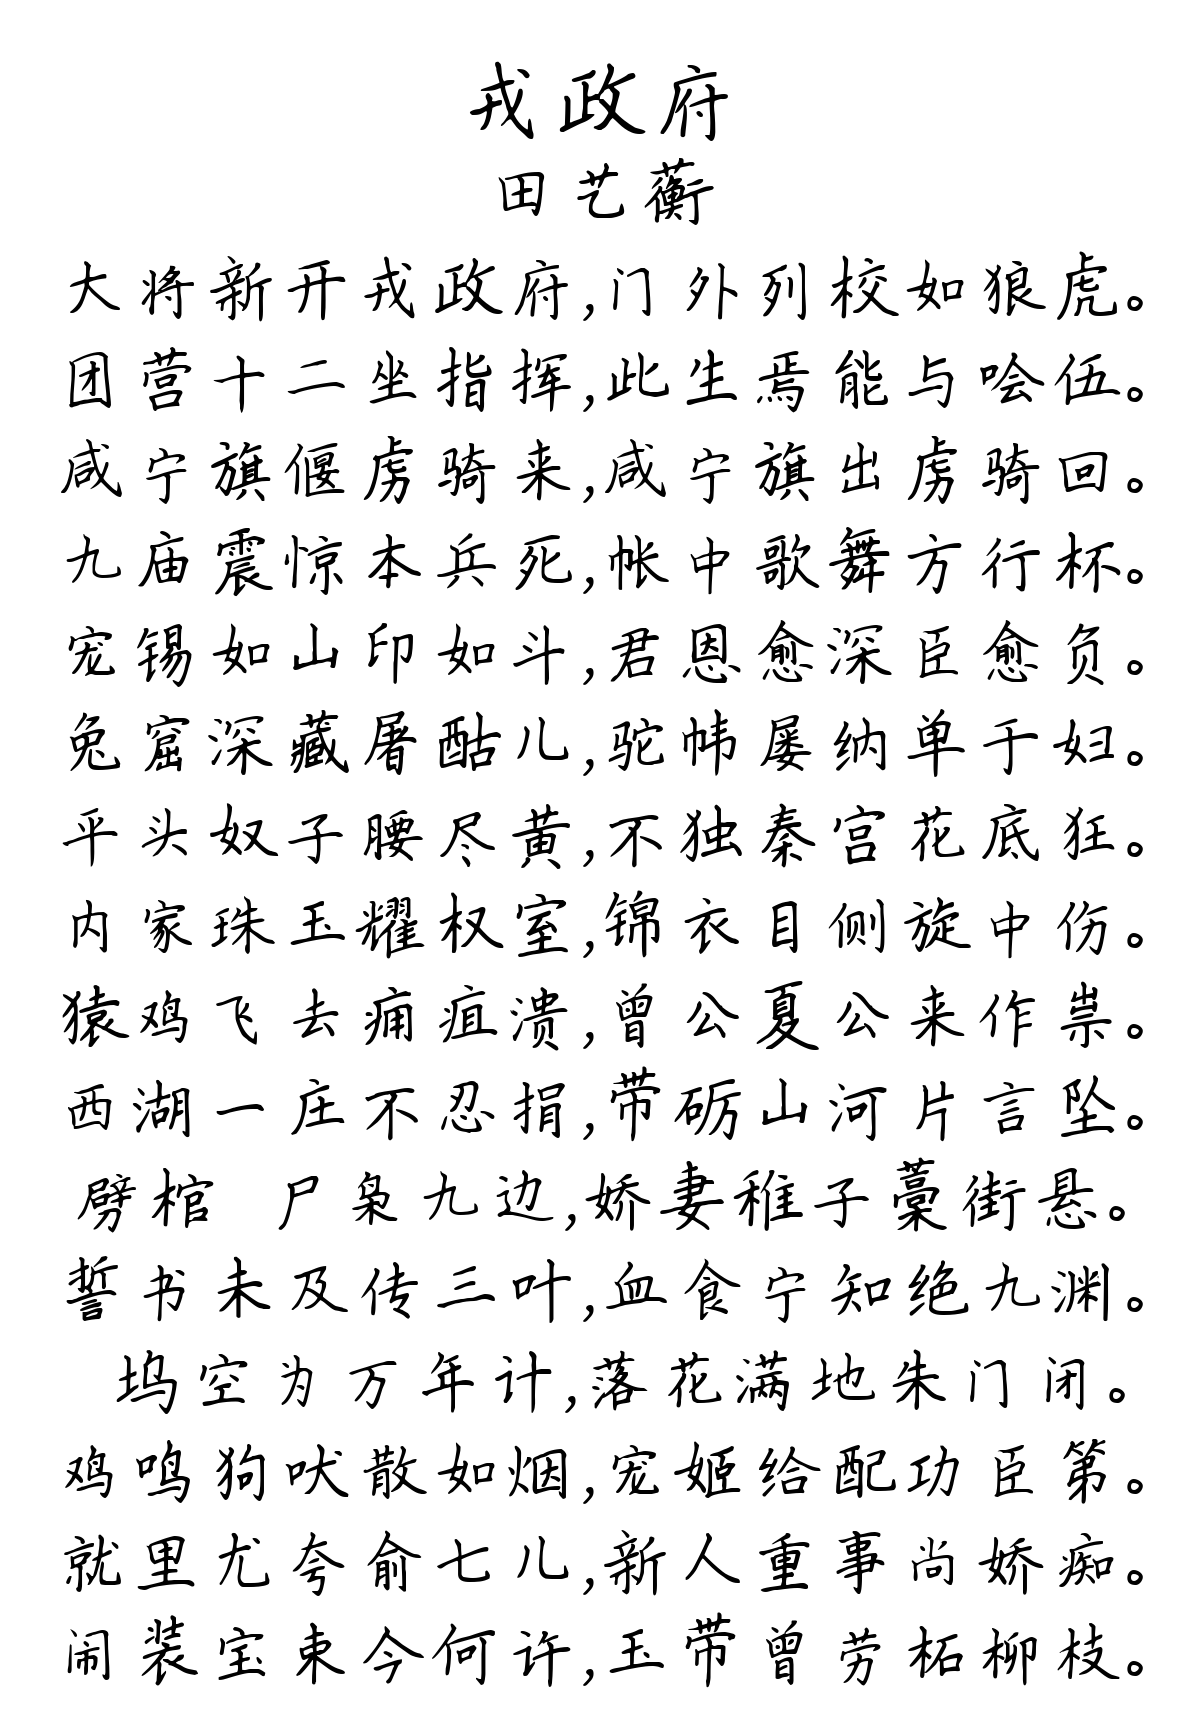 戎政府
田艺蘅
大将新开戎政府,门外列校如狼虎。
团营十二坐指挥,此生焉能与哙伍。
咸宁旗偃虏骑来,咸宁旗出虏骑回。
九庙震惊本兵死,帐中歌舞方行杯。
宠锡如山印如斗,君恩愈深臣愈负。
兔窟深藏屠酤儿,驼帏屡纳单于妇。
平头奴子腰尽黄,不独秦宫花底狂。
内家珠玉耀权室,锦衣目侧旋中伤。
猿鸡飞去痈疽溃,曾公夏公来作祟。
西湖一庄不忍捐,带砺山河片言坠。
劈棺 尸枭九边,娇妻稚子藁街悬。
誓书未及传三叶,血食宁知绝九渊。
坞空为万年计,落花满地朱门闭。
鸡鸣狗吠散如烟,宠姬给配功臣第。
就里尤夸俞七儿,新人重事尚娇痴。
闹装宝束今何许,玉带曾劳柘柳枝。